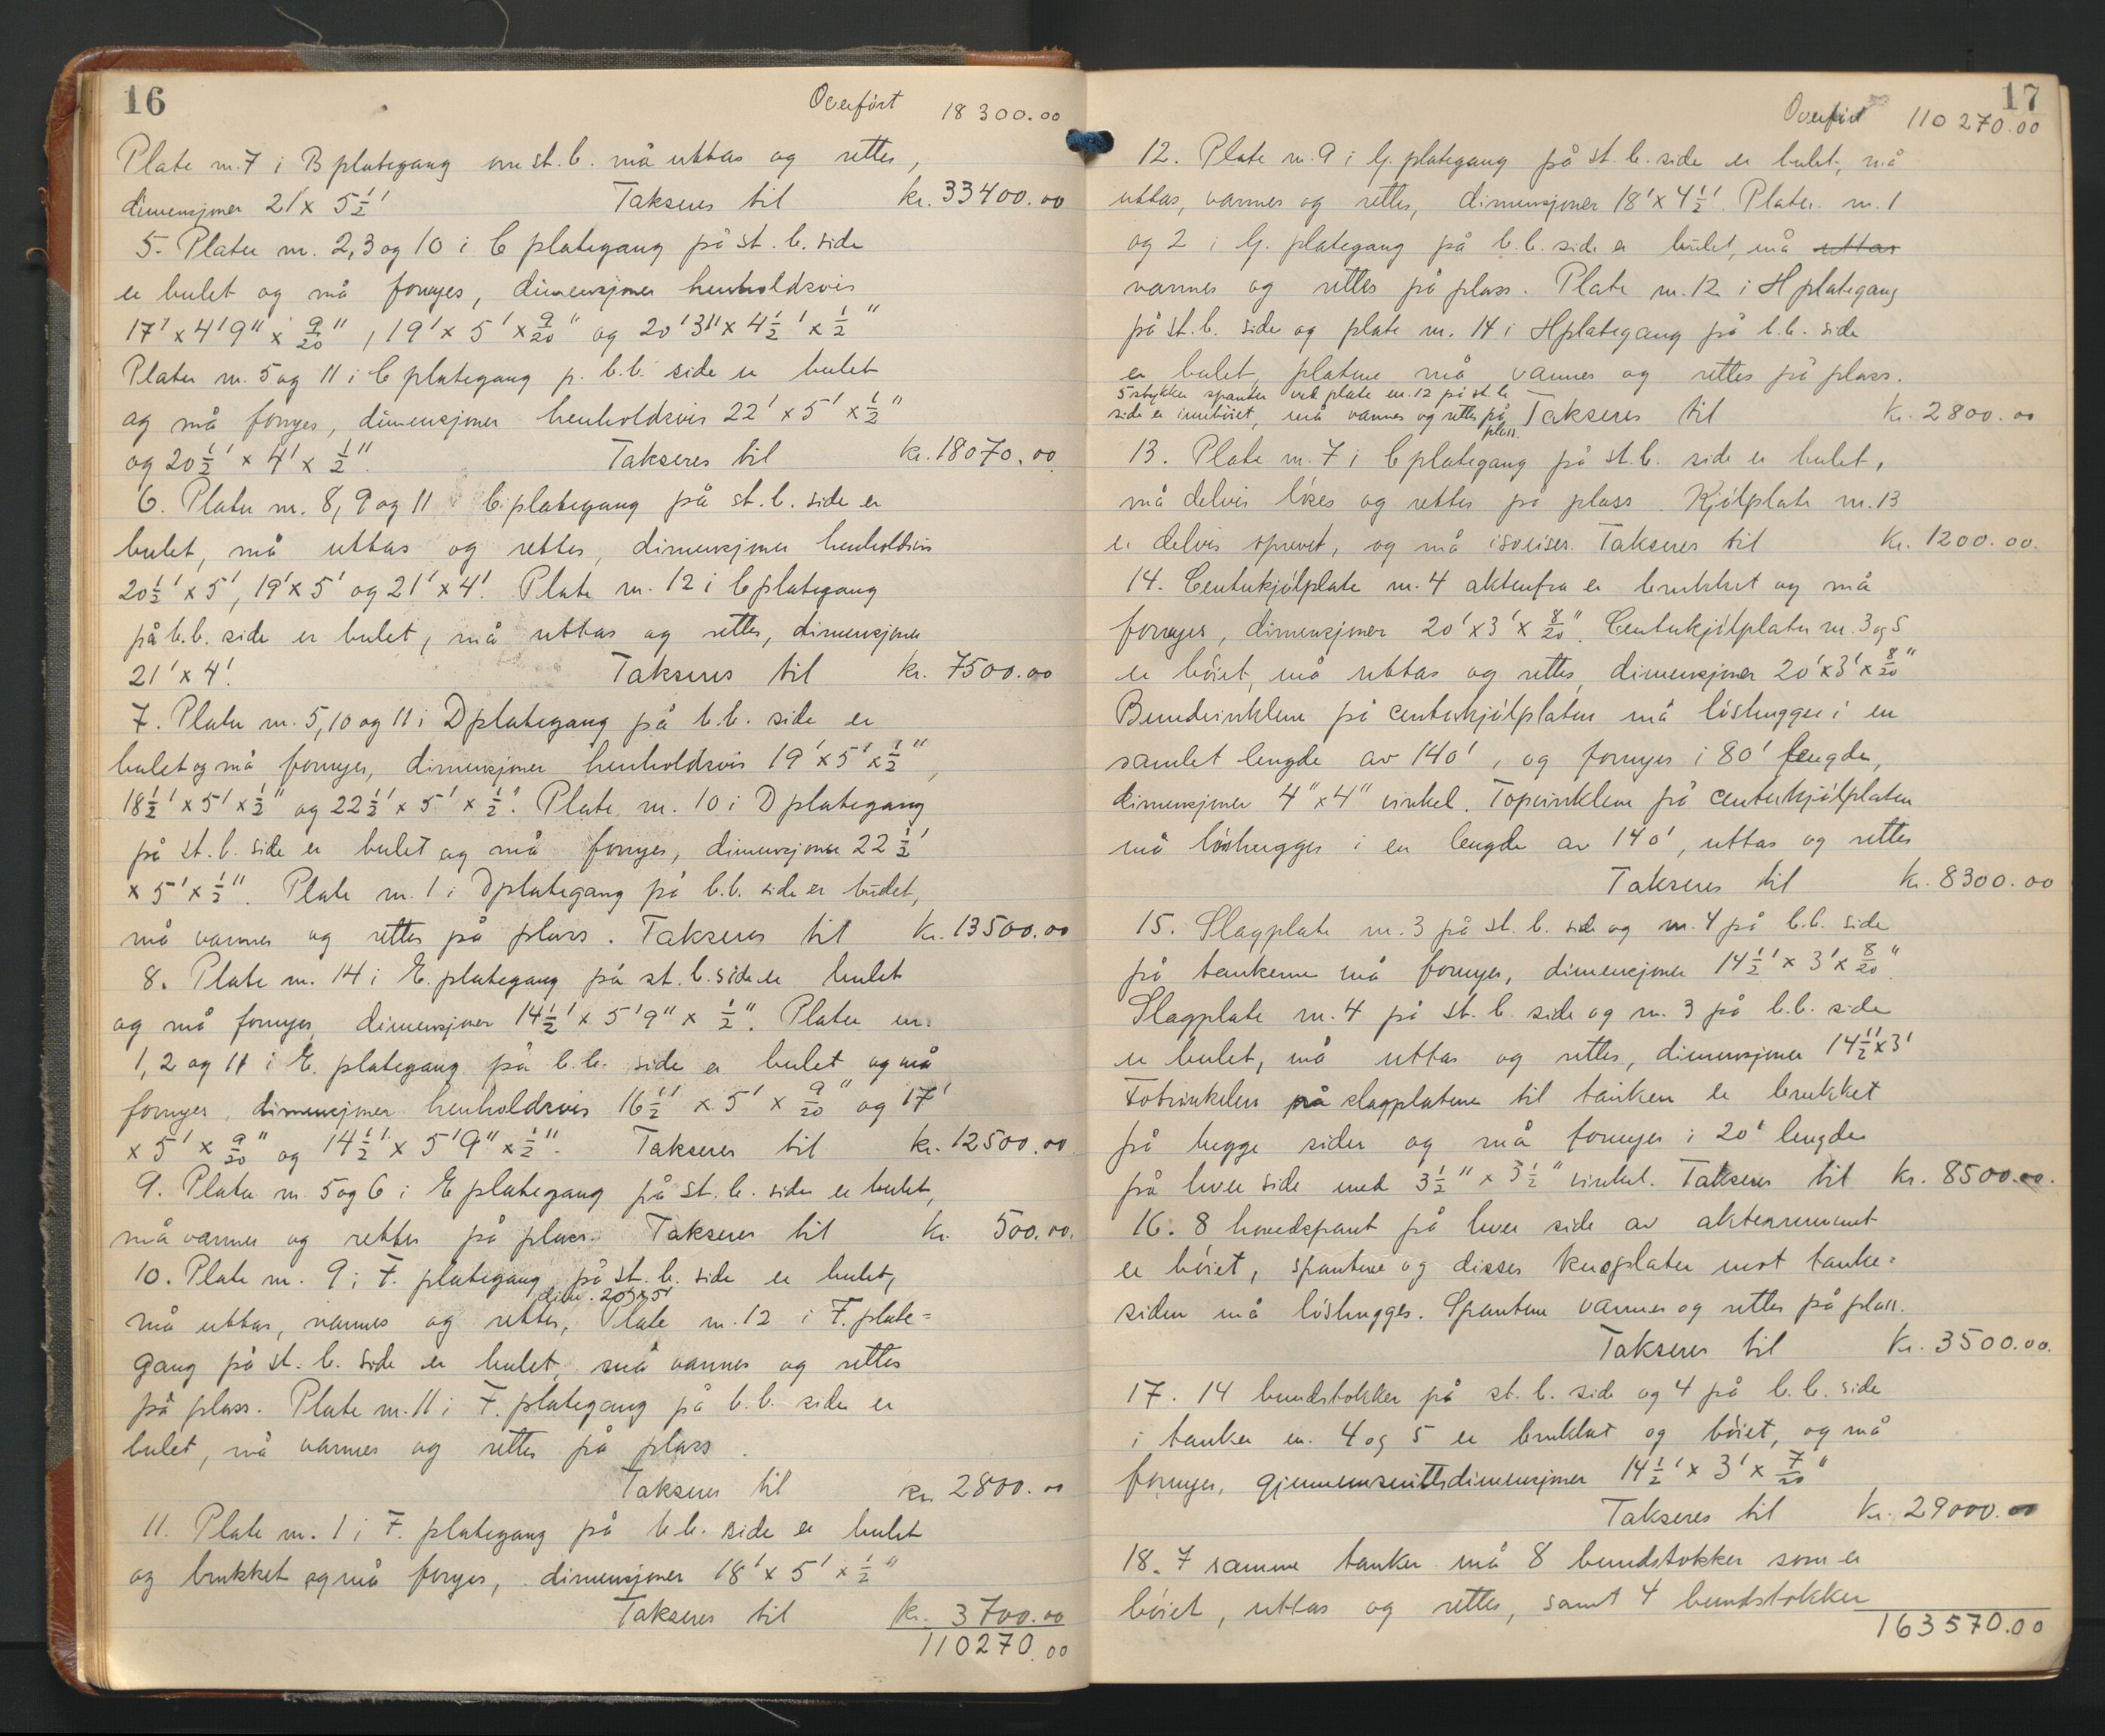 16
Overført 18 300.00
Plate nr. 7 i B plategang om st. b. må uttas og rettes,
dimensjoner 21' x 5 1/2' Takseres til kr. 33400.00
5. Plater nr. 2, 3 og 10 i C plategang på st. b. side
er bulet og må fornyes, dimensjoner henholdsvis
17' x 4' 9" x 9/20", 19' x 5' x 9/20" og 20' 3" x 4 1/2' x 1/2"
Plater nr. 5 og 11 i C plategang p. b.b. side er bulet
og må fornyes, dimensjoner henholdsvis 22' x 5' x 1/2"
og 20 1/2' x 4' x 1/2". Takseres til kr. 18070.00
6. Plater nr. 8, 9 og 11 C plategang på st. b. side er
bulet, må uttas og rettes, dimensjoner henholdsvis
20 1/2' x 5', 19' x 5' og 21' x 4'. Plate nr. 12 i C plategang
på b.b. side er bulet, må uttas og rettes, dimensjoner
21' x 4'. Takseres til kr. 7500.00
7. Plater nr. 5, 10 og 11 i D plategang på b.b. side er
bulet og må fornyes, dimensjoner henholdsvis 19' x 5' x 1/2",
18 1/2' x 5' x 1/2" og 22 1/2' x 5' x 1/2". Plate nr. 10 i D plategang
på st. b. side er bulet og må fornyes, dimensjoner 22 1/2'
x 5' x 1/2". Plate nr. 1 i D plategang på b.b. side er bulet,
må varmes og rettes på plass. Takseres til kr. 13500.00
8. Plate nr. 14 i E. plategang på st. b. side er bulet
og må fornyes, dimensjoner 14 1/2' x 5' 9" x 1/2". Plater nr.
1, 2 og 11 i E. plategang på b.b. side er bulet og må
fornyes, dimensjoner henholdsvis 16 1/2' x 5' x 9/20" og 17'
x 5' x 9/20" og 14 1/2' x 5' 9" x 1/2". Takseres til kr. 12500.00
9. Plater nr. 5 og 6 i E plategang på st. b. side er bulet,
må varmes og rettes på plass. Takseres til kr. 500.00.
10. Plate nr. 9 i F. plategang på st. b. side er bulet,
dim. 20' x 5'
må uttas, varmes og rettes, Plate nr. 12 i F. plate=
gang på st. b. side er bulet, må varmes og rettes
på plass. Plate nr. 11 i F. plategang på b.b. side er
bulet, må varmes og rettes på plass.
Takseres til kr. 2800.00
11. Plate nr. 1 i F. plategang på b.b. side er bulet
og brukket og må fornyes, dimensjoner 18' x 5' x 1/2"
Takseres til kr. 3700.00
110270.00
17
Overført 110 270.00
12. Plate nr. 9 i G. plategang på st. b. side er bulet, må
uttas, varmes og rettes, dimensjoner 18' x 4 1/2'. Plater nr. 1
og 2 i G. plategang på b.b. side er bulet, må uttas
varmes og rettes på plass. Plate nr. 12 i H plategang
på st. b. side og plate nr. 14 i H plategang på b.b. side
er bulet, platene må varmes og rettes på plass.
5 stykker spanter ved plate nr. 12 på st. b.
side er innbøiet, må varmes og rettes på plass. Takseres til kr. 2800.00
13. Plate nr. 7 i C plategang på st. b. side er bulet,
må delvis løses og rettes på plass. Kjølplate nr. 13
er delvis sprevet, og må isveises. Takseres til kr. 1200.00.
14. Centerkjølplate nr. 4 aktenfra er brukket og må
fornyes, dimensjoner 20' x 3' x 8/20". Centerkjølplater nr. 3 og 5
er bøiet, må uttas og rettes, dimensjoner 20' x 3' x 8/20"
Bundvinklene på centerkjølplaten må løshugges i en
samlet lengde av 140', og fornyes i 80' lengde,
dimensjoner 4" x 4" vinkel. Topvinklene på centerkjølplaten
må løshugges i en lengde av 140', uttas og rettes
Takseres til kr. 8300.00
15. Slagplate nr. 3 på st. b. side og nr. 4 på b.b. side
på tankerne må fornyes, dimensjoner 14 1/2' x 3' x 8/20".
Slagplate nr. 4 på st. b. side og nr. 3 på b.b. side
er bulet, må uttas og rettes, dimensjoner 14 1/2' x 3'
Fotvinkelen på slagplatene til tanken er brukket
på begge sider og må fornyes i 20' lengde
på hver side med 3 1/2" x 3 1/2" vinkel. Takseres til kr. 8500.00.
16. 8 hovedspant på hver side av akterrummet
er bøiet, spantene og disses kneplater mot tanke=
siden må løshugges. Spantene varmes og rettes på plass.
Takseres til kr. 3500.00.
17. 14 bundstokker på st. b. side og 4 på b.b. side
i tanker nr. 4 og 5 er brukket og bøiet, og må
fornyes, gjennemsnittsdimensjoner 14 1/2' x 3' x 7/20"
Takseres til kr. 29000.00
18. I samme tanker må 8 bundstokker som er
bøiet, uttas og rettes, samt 4 bundstokker
163570.00